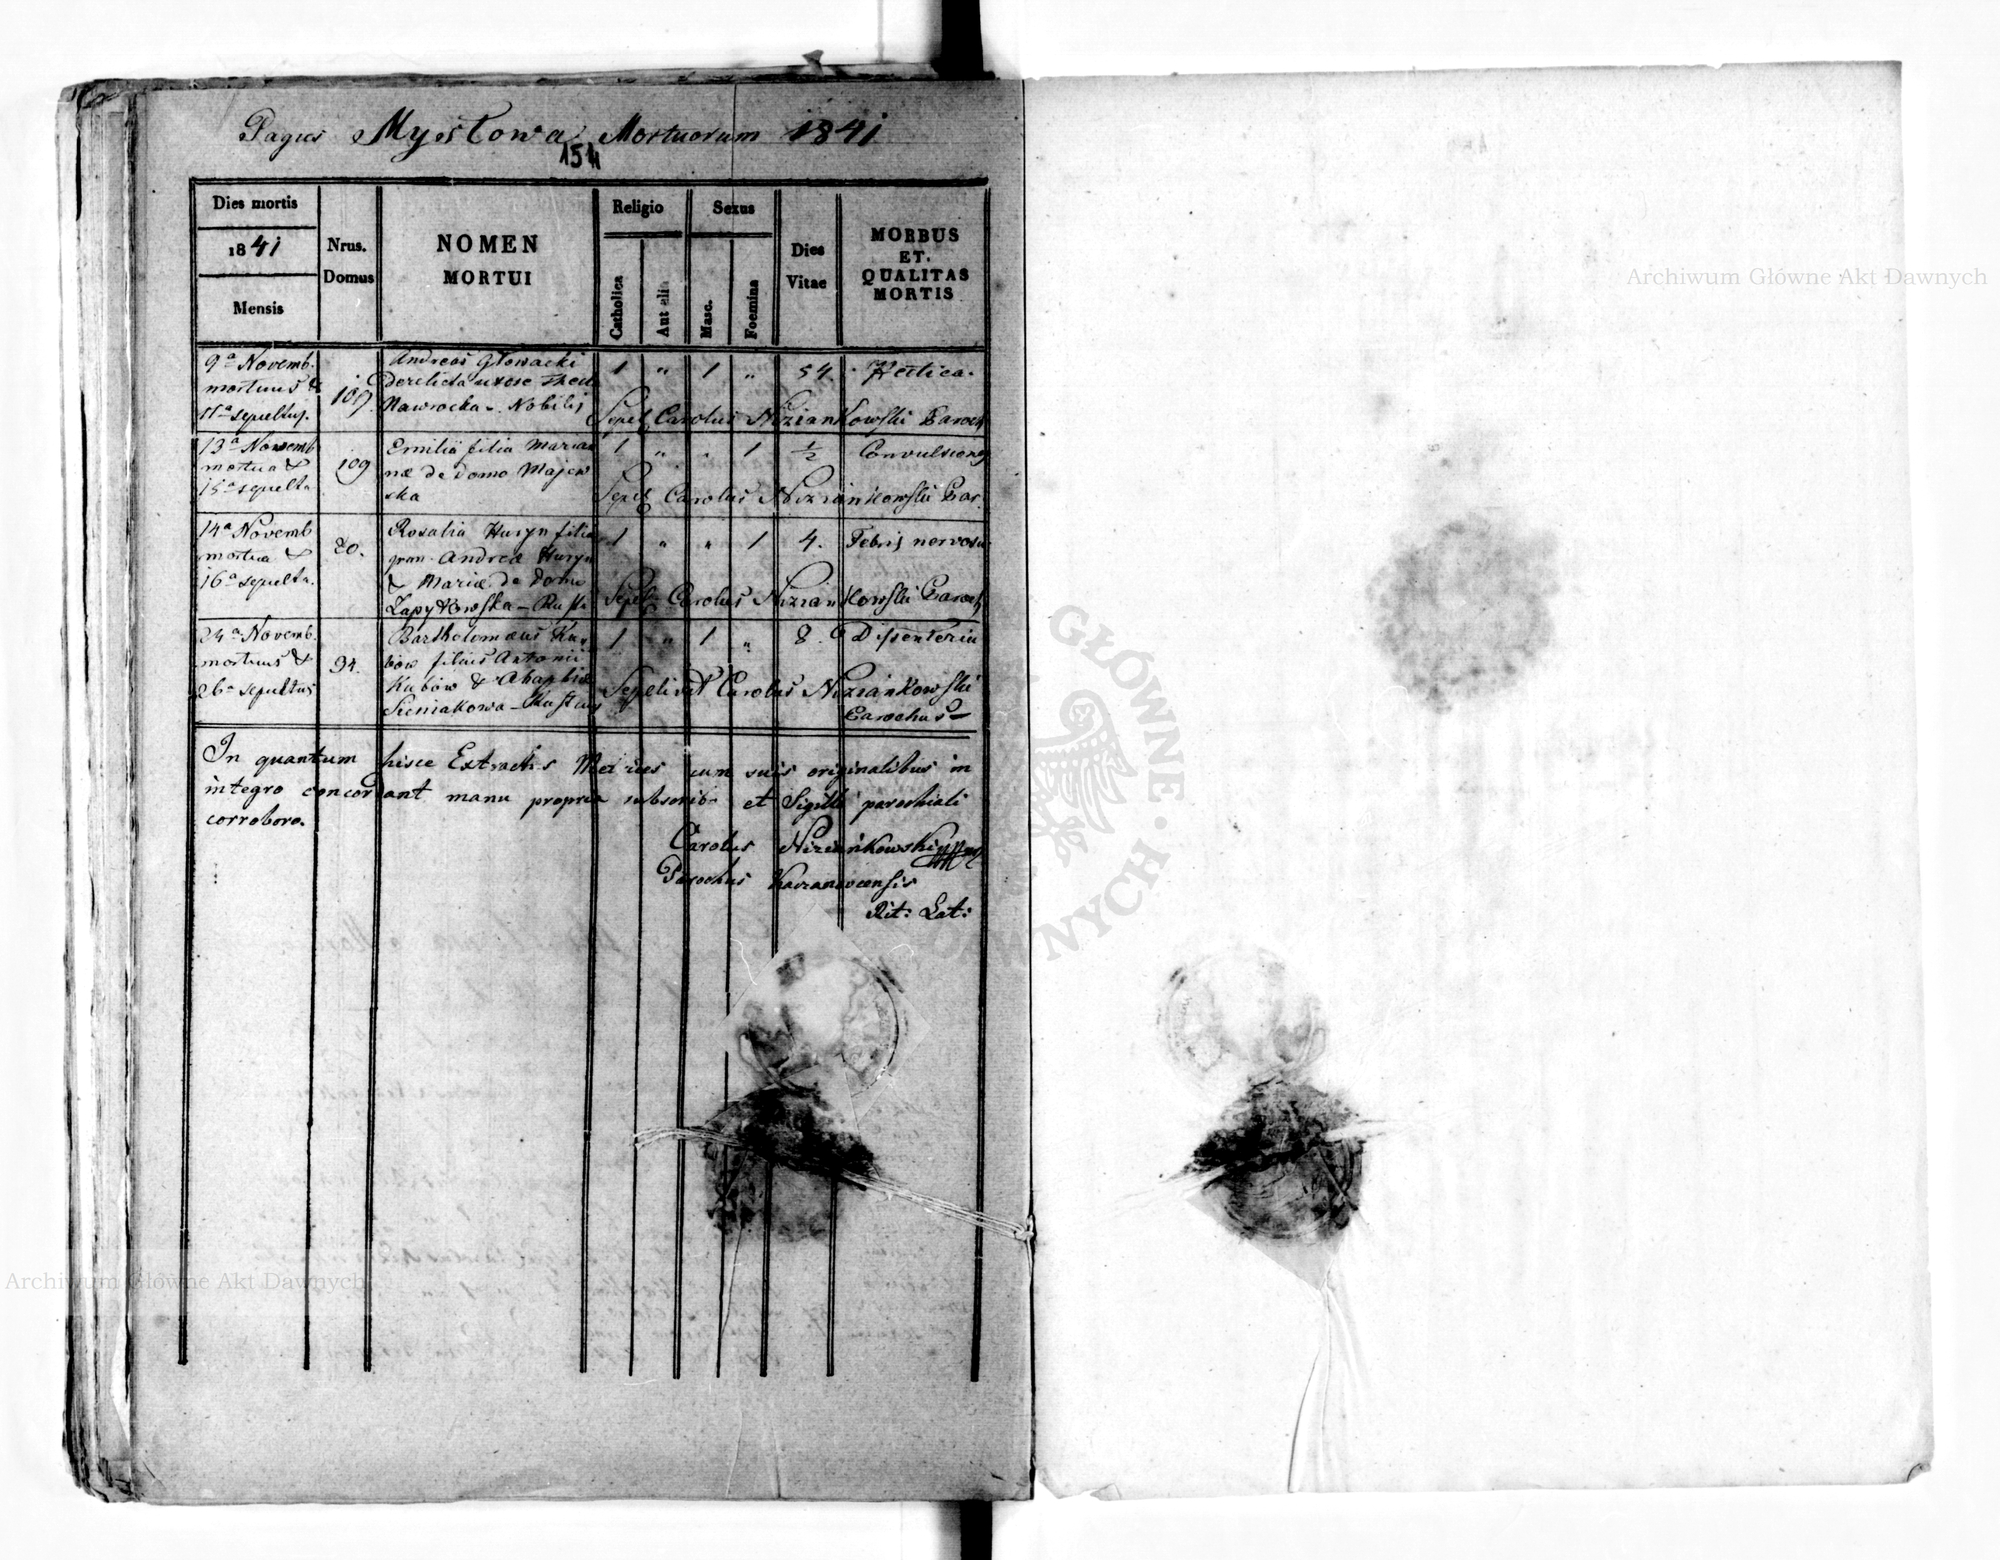 Pagus Mysłowa Mortuorum 1841
154
Dies mortis
1841
Mensis
Nrus.
Domus
NOMEN
MORTUI
Religio
Catholica
Aut alia
Sexus
Masc.
Foemina
Dies
Vitae
MORBUS
ET.
QUALITAS
MORTIS
9a Novemb.
mortuus &
11a sepultus.
109.
Andreas Głowacki
derelicta uxore
Nawrocka - Nobilis
1 " 1 " 54. Hectica.
Sepel Carolus Niziankowski Paroch
13a Novemb
mortua &
15a sepulta
109
Emilii filia Maria
næ de domo Majew
ska
1 " " 1 ½ Convulsiones
Sepel Carolus Niziankowski Par.
14a Novemb
mortua &
16a sepulta.
20.
Rosalia Huryn filia
Andreæ Huryn
& Mariæ de Domo
Zapytowska - Rusti
1 " " 1 4. Febris nervosa
Sepel Carolus Niziankowski Paroch
24a Novemb.
mortuus &
26a sepultus
94.
Bartholomæus Ku
bów filius Antonii
Kubów & Ahaphiæ
Sieniakowa - Rustici
1 " 1 " 8. Dissenteria
Sepelivit Carolus Niziankowski
Parochus
In quantum hisce Extractis Metrices cum suis originalibus in
integro concordant manu propria subscribo et Sigillo parochiali
corroboro.
Carolus Niziankowski
Parochus
Rit: Lat:
Archiwum Główne Akt Dawnych
Archiwum Główne Akt Dawnych
GŁÓWNE